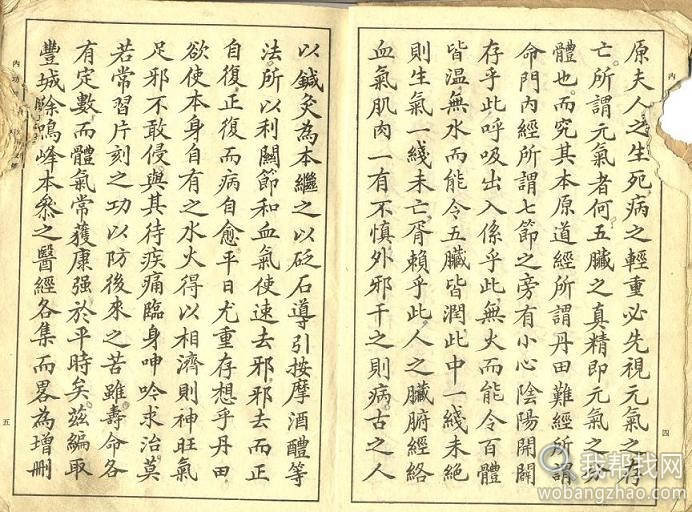 原夫人之生死病之輕重必先視元氣之存
亡所謂元氣者何五臟之真精即元氣之分
體也而究其本原道經所謂丹田難經所謂
命門内經所謂七節之旁有小心陰陽開闢
存乎此呼吸出入係乎此無火而能令百體
皆温無水而能令五臟皆潤此中一綫未絶
則生氣一綫未亡胥賴乎此人之臟腑經絡
血氣肌肉一有不慎外邪干之則病古之人
四
以鍼灸為本繼之以砭石導引按摩酒醴等
法所以利關節和血氣使速去邪邪去而正
自復正復而病自愈平日尤重存想乎丹田
欲使本身自有之水火得以相濟則神旺氣
足邪不敢侵與其待疾痛臨身呻吟求治莫
若常習片刻之功以防後來之苦雖壽命各
有定數而體氣常獲康强於平時矣兹編取
豐城徐鳴峰本叅之醫經各集而畧為增刪
内功
五
我帮找网
wobangzhao.com